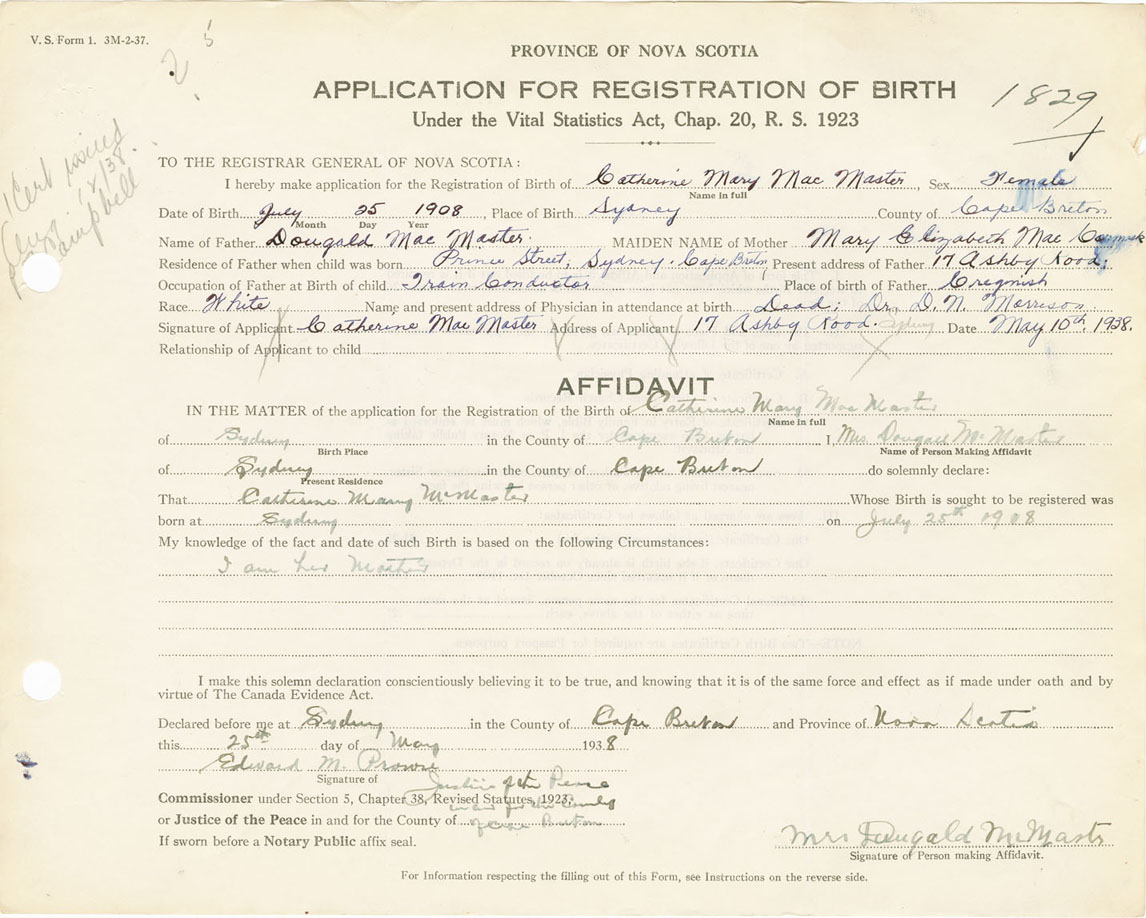 V. S. Form 1. 3M-2-37.
2
PROVINCE OF NOVA SCOTIA
APPLICATION FOR REGISTRATION OF BIRTH
1829
Under the Vital Statistics Act, Chap. 20, R. S. 1923
TO THE REGISTRAR GENERAL OF NOVA SCOTIA:
I hereby make application for the Registration of Birth of Catherine Mary Mac Master, Sex. Female
Name in full
Date of Birth July 25 1908, Place of Birth Sydney County of Cape Breton
Month Day Year
Name of Father Dougald Mac Master. MAIDEN NAME of Mother Mary Elizabeth Mac Cormack
Residence of Father when child was born Prince Street, Sydney. Cape Breton Present address of Father 17 Ashby Road;
Occupation of Father at Birth of child Train Conductor Place of birth of Father Cregnish
Race White Name and present address of Physician in attendance at birth Dead; Dr. D. N. Morrison
Signature of Applicant Catherine Mac Master Address of Applicant 17 Ashby Road. Sydney Date May 10th, 1938.
Relationship of Applicant to child
AFFIDAVIT
IN THE MATTER of the application for the Registration of the Birth of Catherine Mary Mac Master
Name in full
of Sydney in the County of Cape Breton I, Mrs. Dougall McMaster
Birth Place Name of Person Making Affidavit
of Sydney in the County of Cape Breton do solemnly declare:
Present Residence
That Catherine Mary McMaster Whose Birth is sought to be registered was
born at Sydney on July 25th 1908
My knowledge of the fact and date of such Birth is based on the following Circumstances:
I am her Mother
I make this solemn declaration conscientiously believing it to be true, and knowing that it is of the same force and effect as if made under oath and by
virtue of The Canada Evidence Act.
Declared before me at Sydney in the County of Cape Breton and Province of Nova Scotia
this 25th day of May 1938
Edward M. Prowse
Signature of Justice of the Peace
Commissioner under Section 5, Chapter 38, Revised Statutes, 1923, in and for the County
or Justice of the Peace in and for the County of of Cape Breton
If sworn before a Notary Public affix seal.
Mrs Dungald McMaster
Signature of Person making Affidavit.
For Information respecting the filling out of this Form, see Instructions on the reverse side.